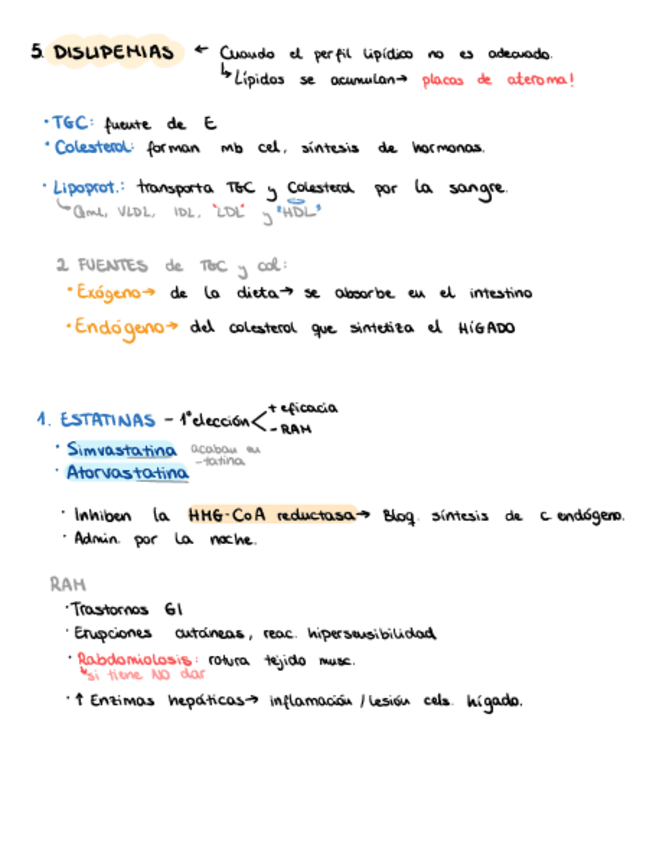 5. DISLIPEMIAS ← Cuando el perfil lipídico no es adecuado.
↳ Lípidos se acumulan → placas de ateroma!
· TGC: fuente de E
· Colesterol: forman mb cel, síntesis de hormonas.
· Lipoprot.: transporta TGC y Colesterol por la sangre.
↳ Qml, VLDL, IDL, "LDL" y "HDL"
2 FUENTES de TGC y col:
· Exógeno → de la dieta → se absorbe en el intestino
· Endógeno → del colesterol que sintetiza el HÍGADO
1. ESTATINAS - 1ª elección < + eficacia
- RAM
· Simvastatina acaban en
-tatina
· Atorvastatina
· Inhiben la HMG-CoA reductasa → Bloq. síntesis de c endógeno.
· Admin. por la noche.
RAM
· Trastornos GI
· Erupciones cutáneas, reac. hipersensibilidad
· Rabdomiolosis: rotura tejido musc.
↳ si tiene NO dar
· ↑ Enzimas hepáticas → inflamación / lesión cels. hígado.